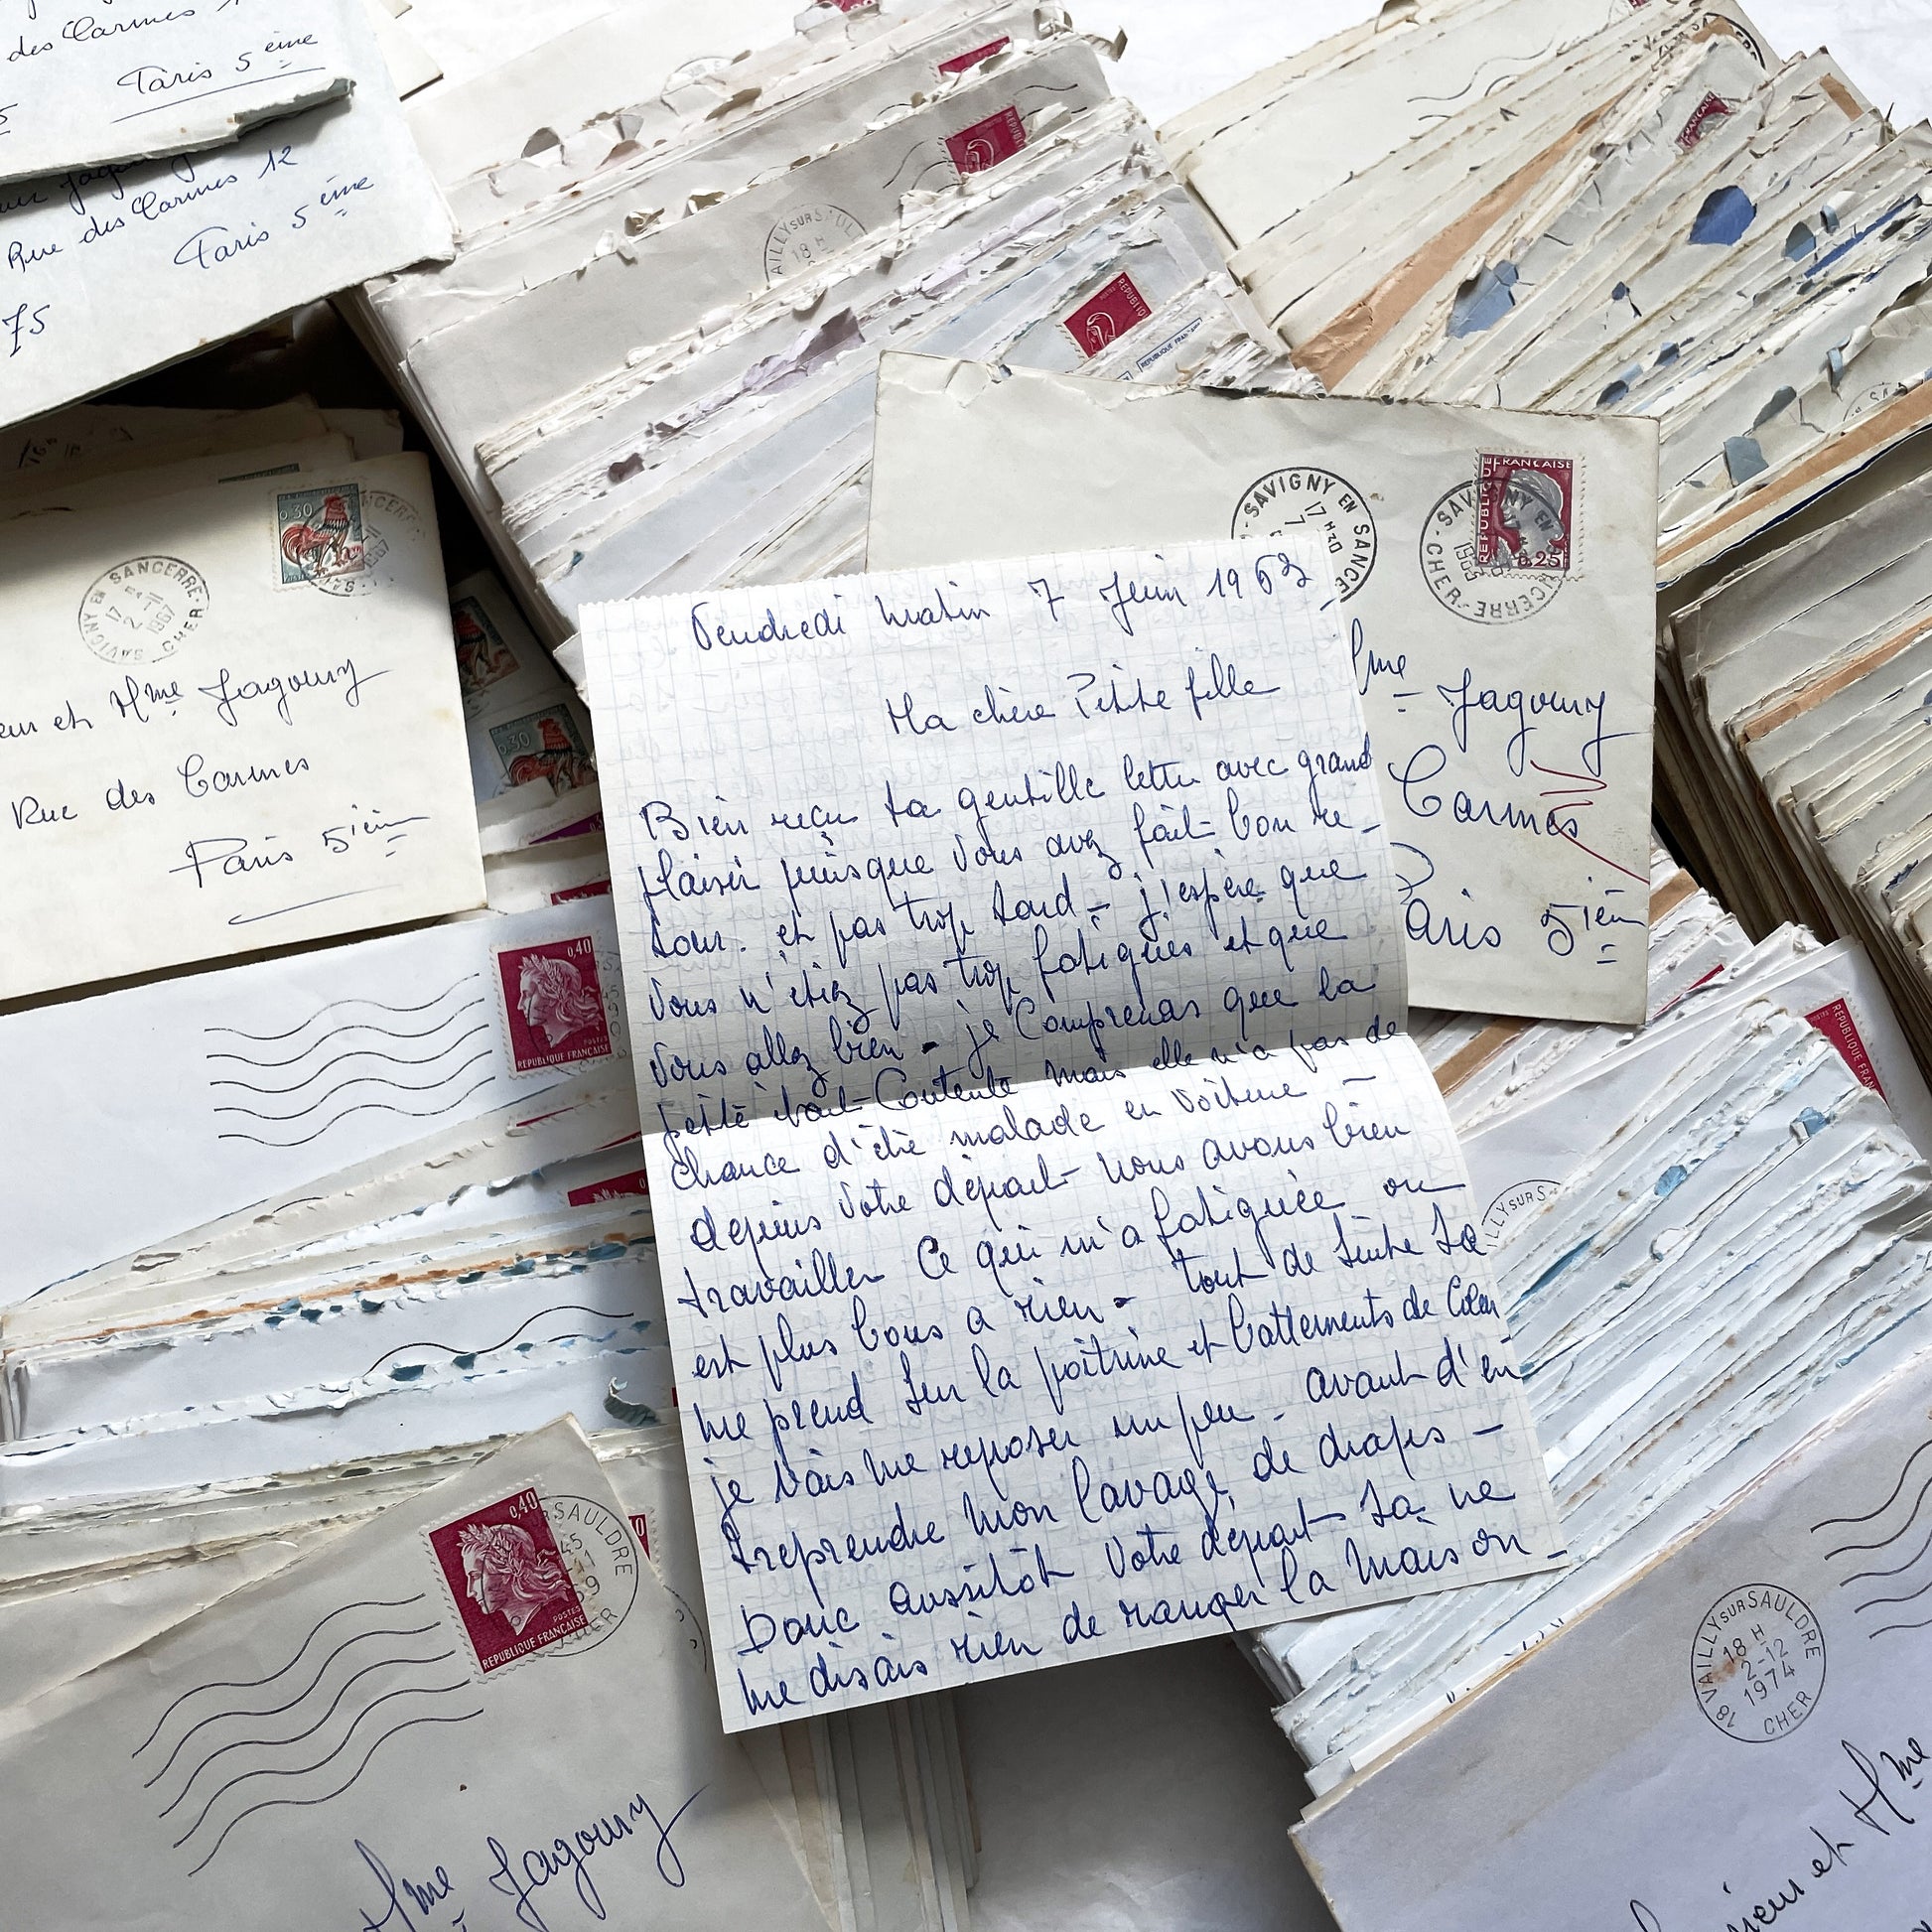 des Carmes
Paris 5 ème
Rue des Carmes 12
Paris 5 ème
75
RÉPUBLIQUE
18 H
REPUBLIQUE
REPUBLIQUE FRANÇAISE
FRANÇAISE
0.30
SAVIGNY EN SANCERRE
17
2-11
1967
CHER
et Mme Jagoury
Rue des Carmes
Paris 5ième
0.30
SAVIGNY EN SANCERRE
17 H30
7
REPUBLIQUE FRANÇAISE
0.25
SAVIGNY EN SANCERRE
CHER
Mme Jagoury
Carmes
Paris 5ième
Vendredi matin 7 Juin 1963
Ma chère Petite fille
Bien reçu ta gentille lettre avec grand
plaisir puisque vous avez fait bon re_
tour. et pas trop tard - j'espère que
vous n'étiez pas trop fatigués et que
vous allez bien - je Comprenas que la
petite était Contente mais elle n'a pas de
chance d'être malade en voiture -
depuis votre départ nous avons bien
travailler Ce qui m'a fatiguée on
est plus bons a rien - tout de suite sa
me prend sur la poitrine et battements de Coeur
je vais me reposer un peu - avant d'en
treprendre mon lavage de draps -
Donc aussitôt votre départ sa ne
me disais rien de ranger la maison -
0,40
POSTES
REPUBLIQUE FRANÇAISE
0,40
POSTES
REPUBLIQUE FRANÇAISE
SAULDRE
CHER
Mme Jagoury
18 VAILLY SUR SAULDRE
18 H
2-12
1974
CHER
et Mme